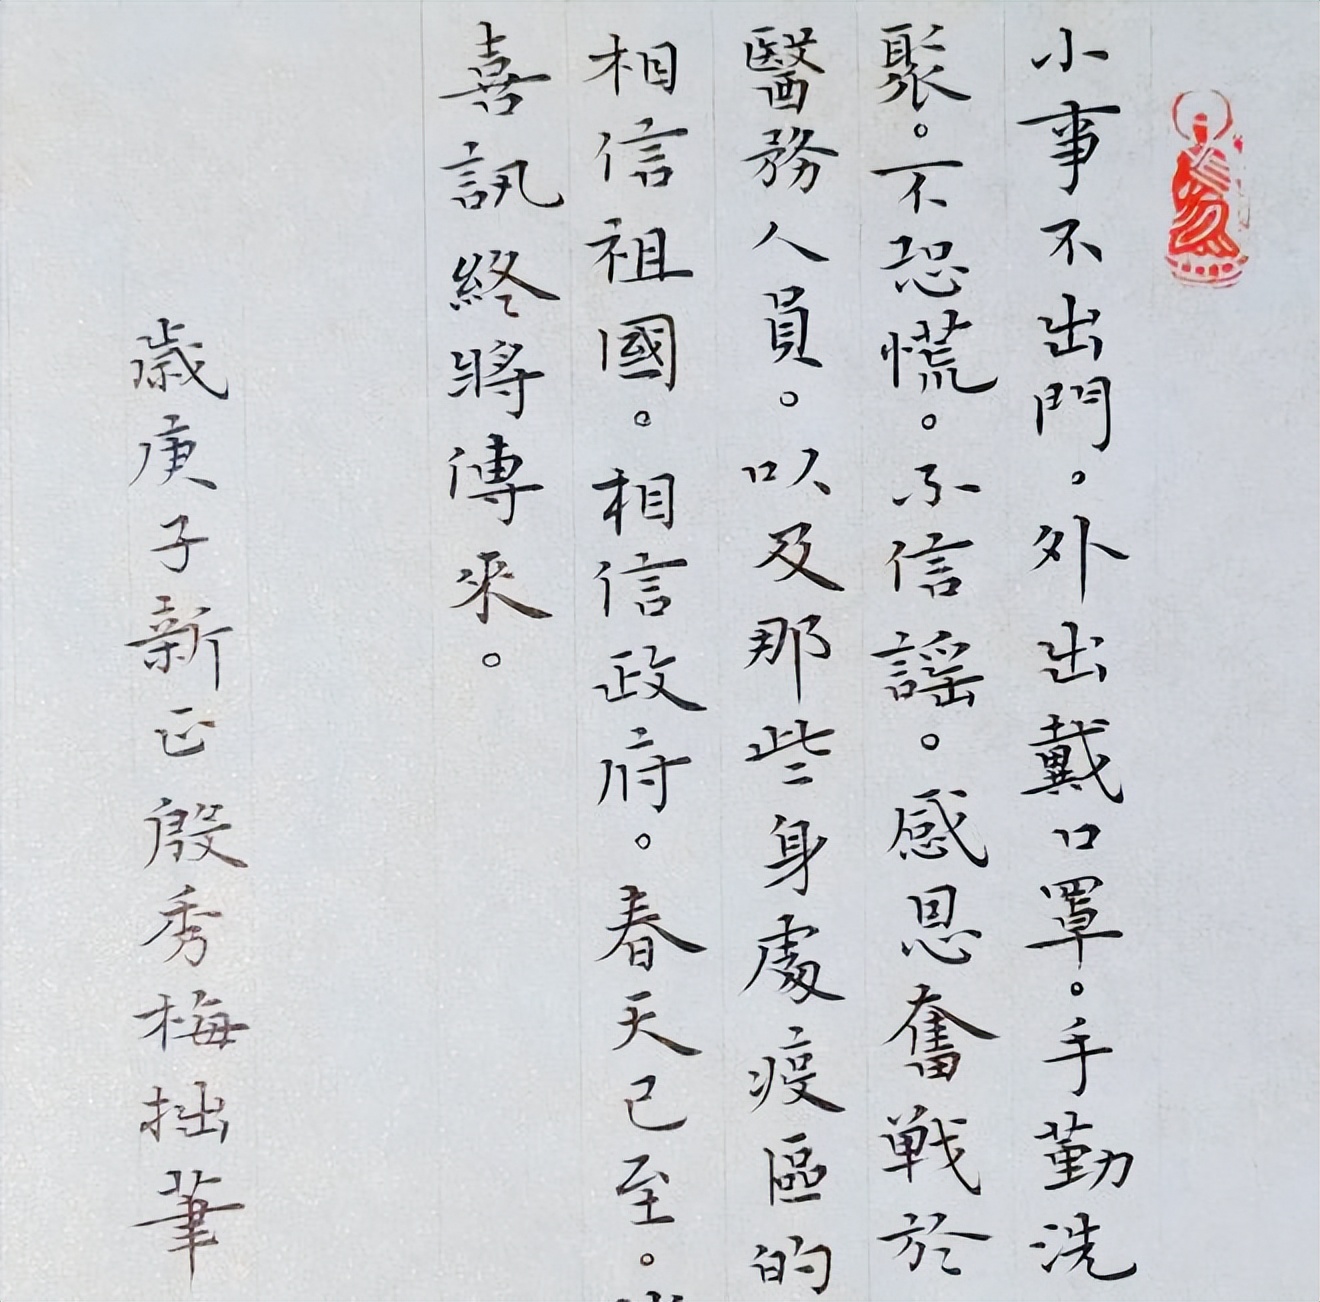 小事不出門。外出戴口罩。手勤洗
聚。不恐慌。不信謡。感恩奮戦於
醫務人員。以及那些身處疫區的
相信祖國。相信政府。春天已至。
喜訊終將傳来。
歳庚子新正殷秀梅拙筆